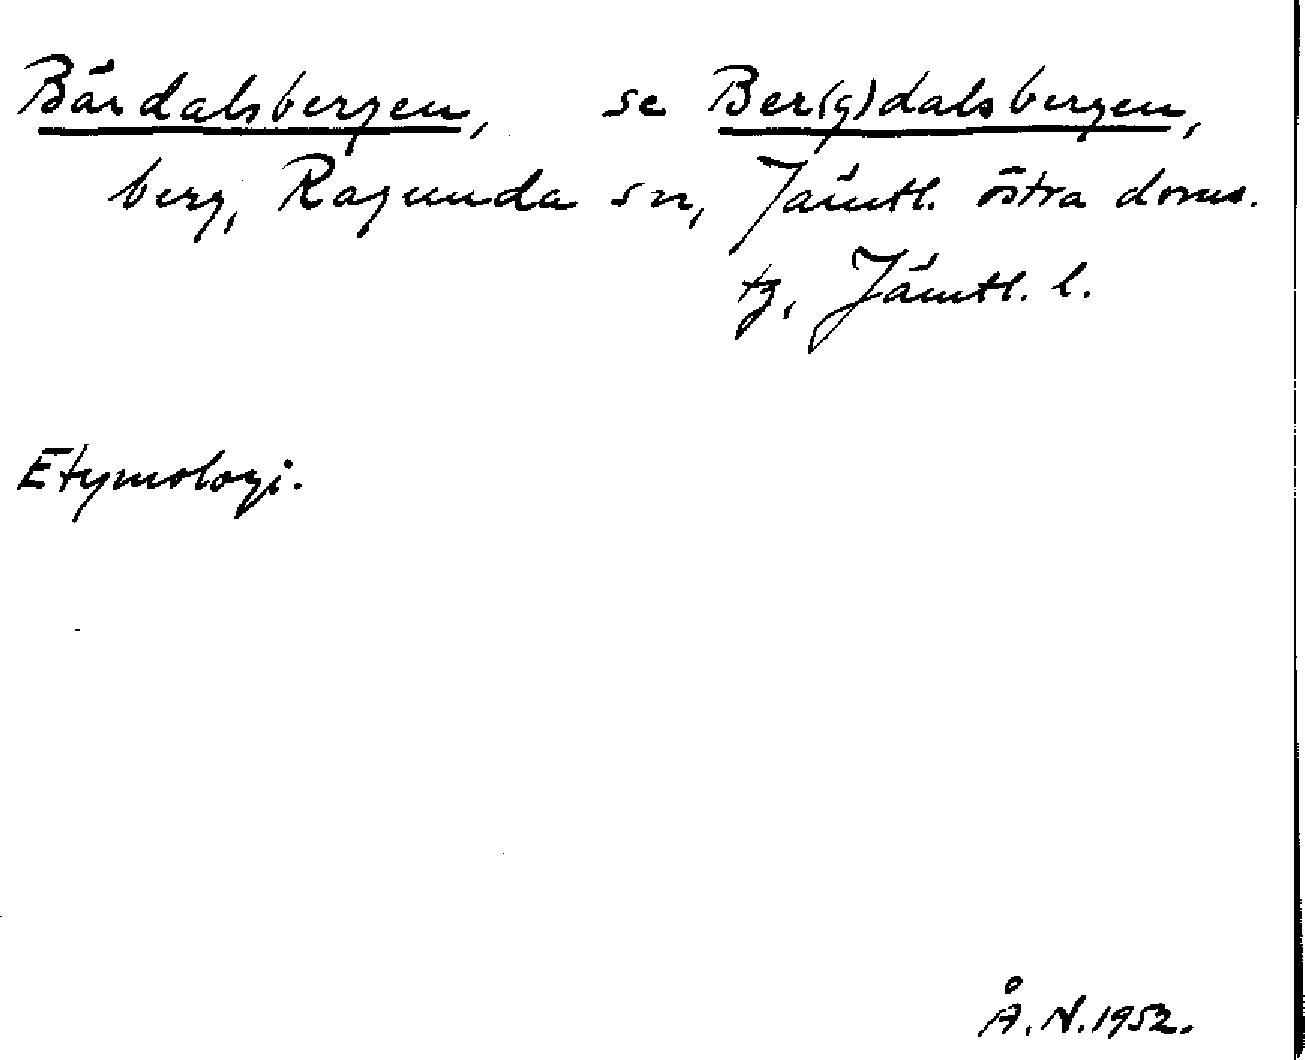 Bärdalsbergen, se Ber(g)dalsbergen,
berg, Ragunda sn, Jämtl. östra doms.
tg, Jämtl. l.
Etymologi.
Å.N.1952.